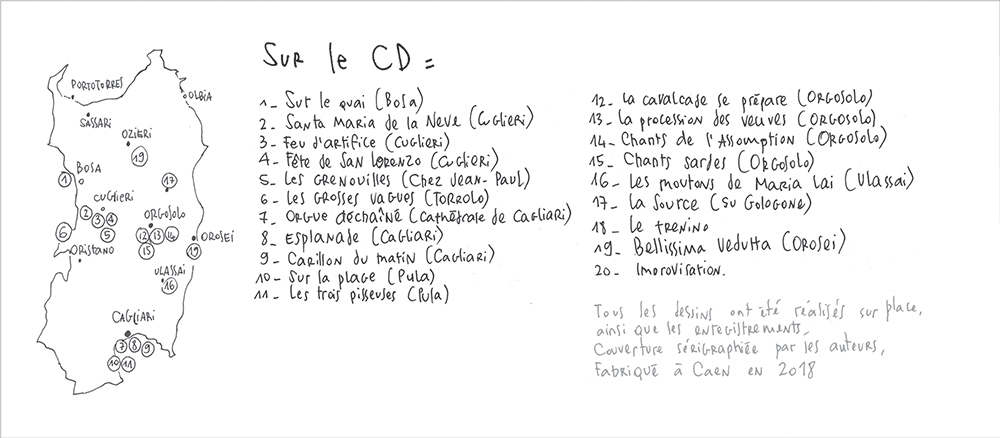 PORTOTORRES
OLBIA
SASSARI
OZIERI
19
1
BOSA
17
CUGLIERI
2 3 4
5
6
ORISTANO
ORGOSOLO
12 13 14
15
OROSEI
19
ULASSAI
16
CAGLIARI
7 8 9
10 11
SUR le CD =
1_ Sur le quai (Bosa)
2_ Santa Maria de la Neve (Cuglieri)
3_ Feu d'artifice (Cuglieri)
4_ Fête de San Lorenzo (Cuglieri)
5_ Les Grenouilles (Chez Jean-Paul)
6_ Les Grosses vagues (Torrolo)
7_ Orgue déchaîné (Cathédrale de Cagliari)
8_ Esplanade (Cagliari)
9_ Carillon du matin (Cagliari)
10_ Sur la plage (Pula)
11_ Les trois pisseuses (Pula)
12_ La cavalcade se prépare (Orgosolo)
13_ La procession des veuves (Orgosolo)
14_ Chants de l'Assomption (Orgosolo)
15_ Chants sardes (Orgosolo)
16_ Les moutons de Maria Lai (Ulassai)
17_ La Source (Su Gologone)
18_ Le trenino
19_ Bellissima Vedutta (Orosei)
20_ Improvisation.
Tous les dessins ont été réalisés sur place,
ainsi que les enregistrements_
Couverture sérigraphiée par les auteurs,
Fabriqué à Caen en 2018